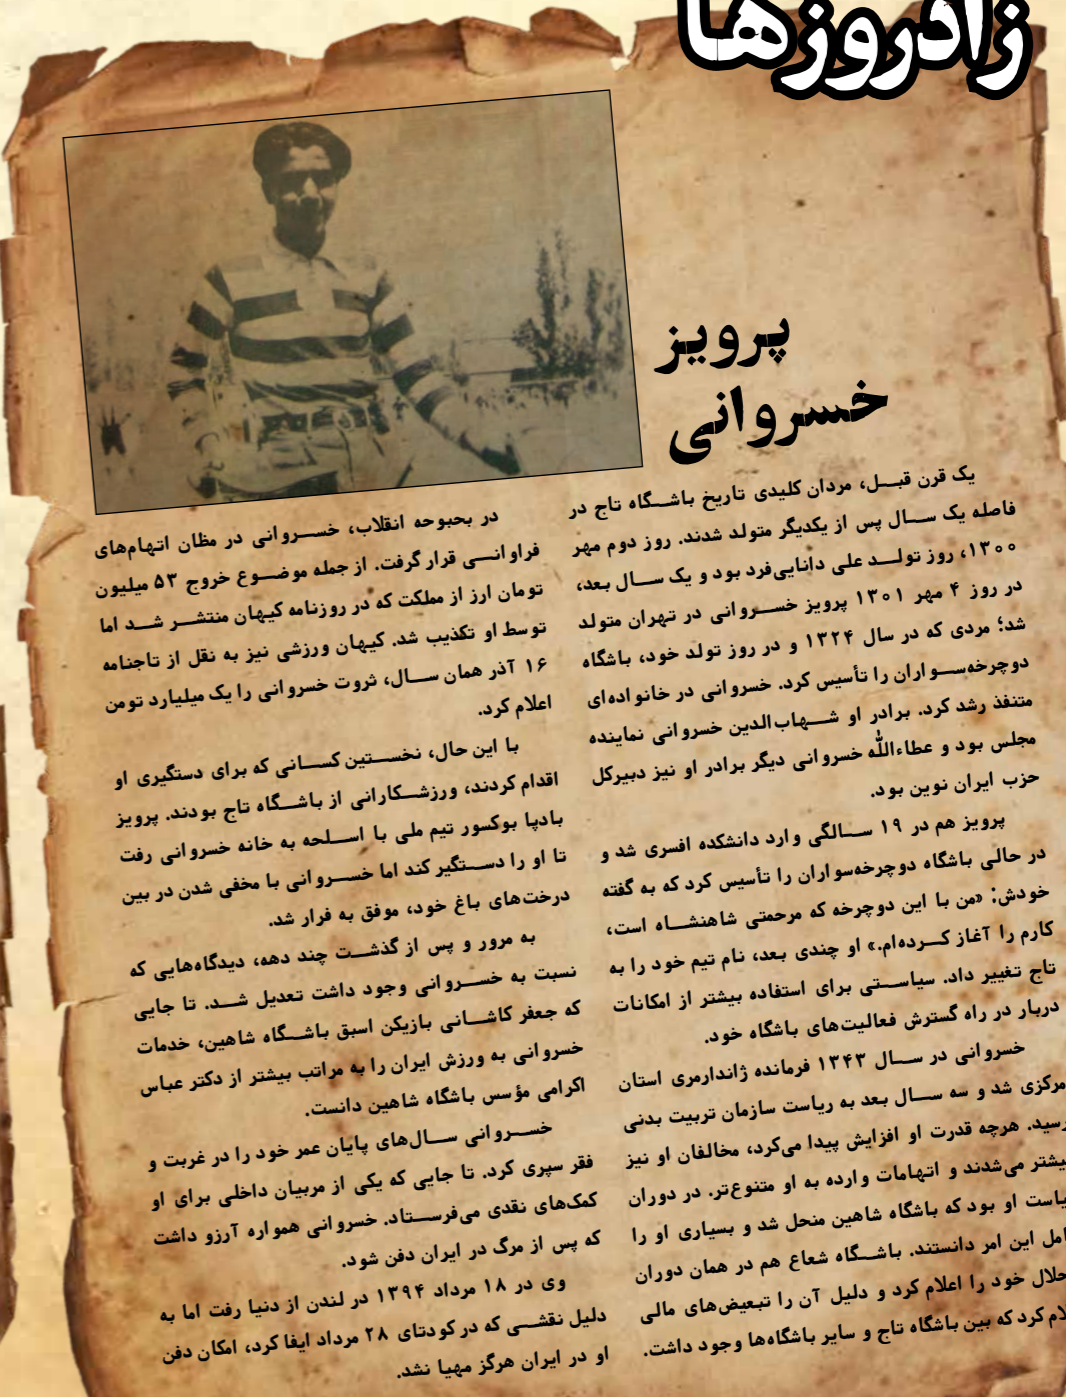 زادروزها
پرویز
خسروانی
یک قرن قبل، مردان کلیدی تاریخ باشگاه تاج در
فاصله یک سال پس از یکدیگر متولد شدند. روز دوم مهر
۱۳۰۰، روز تولد علی دانایی‌فرد بود و یک سال بعد،
در روز ۴ مهر ۱۳۰۱ پرویز خسروانی در تهران متولد
شد؛ مردی که در سال ۱۳۲۴ و در روز تولد خود، باشگاه
دوچرخه‌سواران را تأسیس کرد. خسروانی در خانواده‌ای
متنفذ رشد کرد. برادر او شهاب‌الدین خسروانی نماینده
مجلس بود و عطاءالله خسروانی دیگر برادر او نیز دبیرکل
حزب ایران نوین بود.
پرویز هم در ۱۹ سالگی وارد دانشکده افسری شد و
در حالی باشگاه دوچرخه‌سواران را تأسیس کرد که به گفته
خودش: «من با این دوچرخه که مرحمتی شاهنشاه است،
کارم را آغاز کرده‌ام.» او چندی بعد، نام تیم خود را به
تاج تغییر داد. سیاستی برای استفاده بیشتر از امکانات
دربار در راه گسترش فعالیت‌های باشگاه خود.
خسروانی در سال ۱۳۴۳ فرمانده ژاندارمری استان
مرکزی شد و سه سال بعد به ریاست سازمان تربیت بدنی
رسید. هرچه قدرت او افزایش پیدا می‌کرد، مخالفان او نیز
بیشتر می‌شدند و اتهامات وارده به او متنوع‌تر. در دوران
یاست او بود که باشگاه شاهین منحل شد و بسیاری او را
امل این امر دانستند. باشگاه شعاع هم در همان دوران
حلال خود را اعلام کرد و دلیل آن را تبعیض‌های مالی
لام کرد که بین باشگاه تاج و سایر باشگاه‌ها وجود داشت.
در بحبوحه انقلاب، خسروانی در مظان اتهام‌های
فراوانی قرار گرفت. از جمله موضوع خروج ۵۳ میلیون
تومان ارز از مملکت که در روزنامه کیهان منتشر شد اما
توسط او تکذیب شد. کیهان ورزشی نیز به نقل از تاجنامه
۱۶ آذر همان سال، ثروت خسروانی را یک میلیارد تومن
اعلام کرد.
با این حال، نخستین کسانی که برای دستگیری او
اقدام کردند، ورزشکارانی از باشگاه تاج بودند. پرویز
بادپا بوکسور تیم ملی با اسلحه به خانه خسروانی رفت
تا او را دستگیر کند اما خسروانی با مخفی شدن در بین
درخت‌های باغ خود، موفق به فرار شد.
به مرور و پس از گذشت چند دهه، دیدگاه‌هایی که
نسبت به خسروانی وجود داشت تعدیل شد. تا جایی
که جعفر کاشانی بازیکن اسبق باشگاه شاهین، خدمات
خسروانی به ورزش ایران را به مراتب بیشتر از دکتر عباس
اکرامی مؤسس باشگاه شاهین دانست.
خسروانی سال‌های پایان عمر خود را در غربت و
فقر سپری کرد. تا جایی که یکی از مربیان داخلی برای او
کمک‌های نقدی می‌فرستاد. خسروانی همواره آرزو داشت
که پس از مرگ در ایران دفن شود.
وی در ۱۸ مرداد ۱۳۹۴ در لندن از دنیا رفت اما به
دلیل نقشی که در کودتای ۲۸ مرداد ایفا کرد، امکان دفن
او در ایران هرگز مهیا نشد.